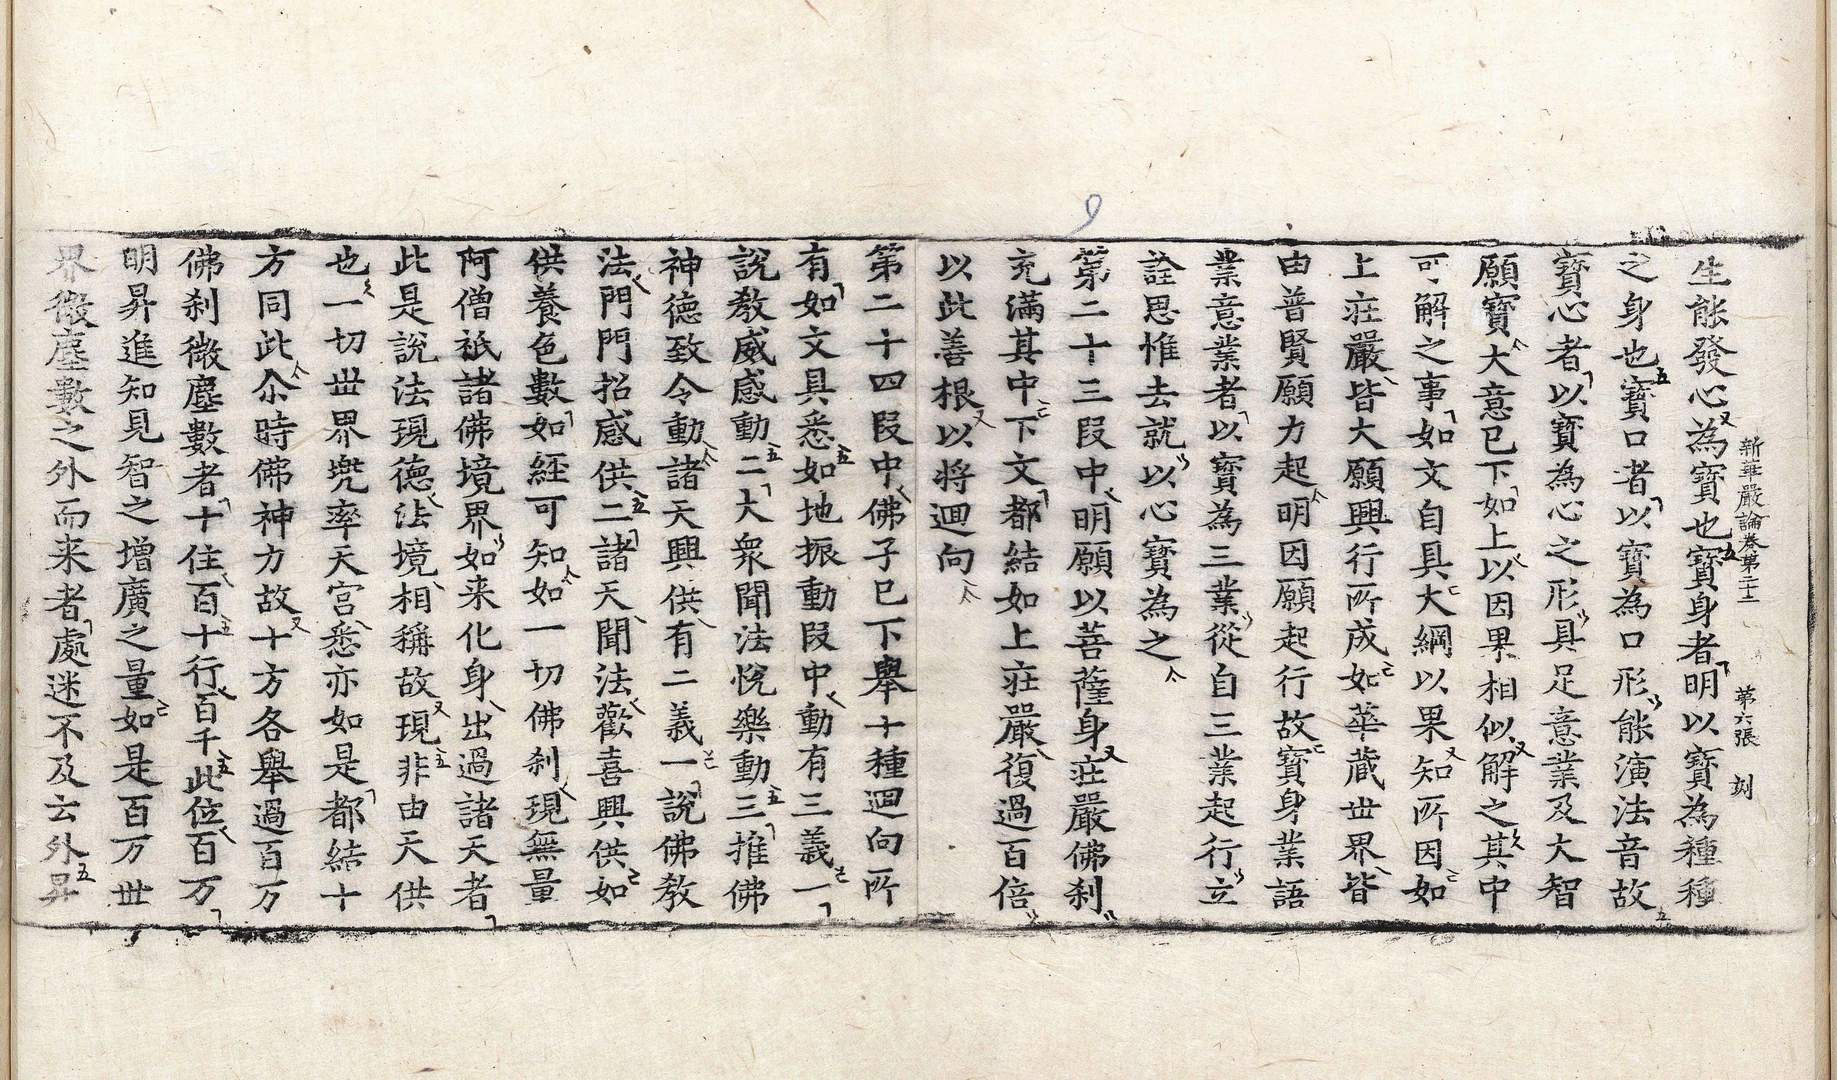 新華嚴論卷第二十二 第六張 刻
生能發心為寶也寶身者明以寶為種種
之身也寶口者以寶為口形能演法音故
寶心者以寶為心之形具足意業及大智
願寶大意已下如上以因果相似解之其中
可解之事如文自具大綱以果知所因如
上莊嚴皆大願興行所成如華藏世界皆
由普賢願力起明因願起行故寶身業語
業意業者以寶為三業從自三業起行立
詮思惟去就以心寶為之
第二十三段中明願以菩薩身莊嚴佛刹
充滿其中下文都結如上莊嚴復過百倍
以此善根以將迴向
第二十四段中佛子已下舉十種迴向所
有如文具悉如地振動段中動有三義一
說教威感動二大衆聞法悅樂動三推佛
神德致令動諸天興供有二義一說佛教
法門門招感供二諸天聞法歡喜興供如
供養色數如經可知如一切佛刹現無量
阿僧祇諸佛境界如来化身出過諸天者
此是說法現德法境相稱故現非由天供
也一切世界兜率天宮悉亦如是都結十
方同此尒時佛神力故十方各舉過百万
佛刹微塵數者十住百十行百千此位百万
明昇進知見智之增廣之量如是百万世
界微塵數之外而来者處迷不及云外昇